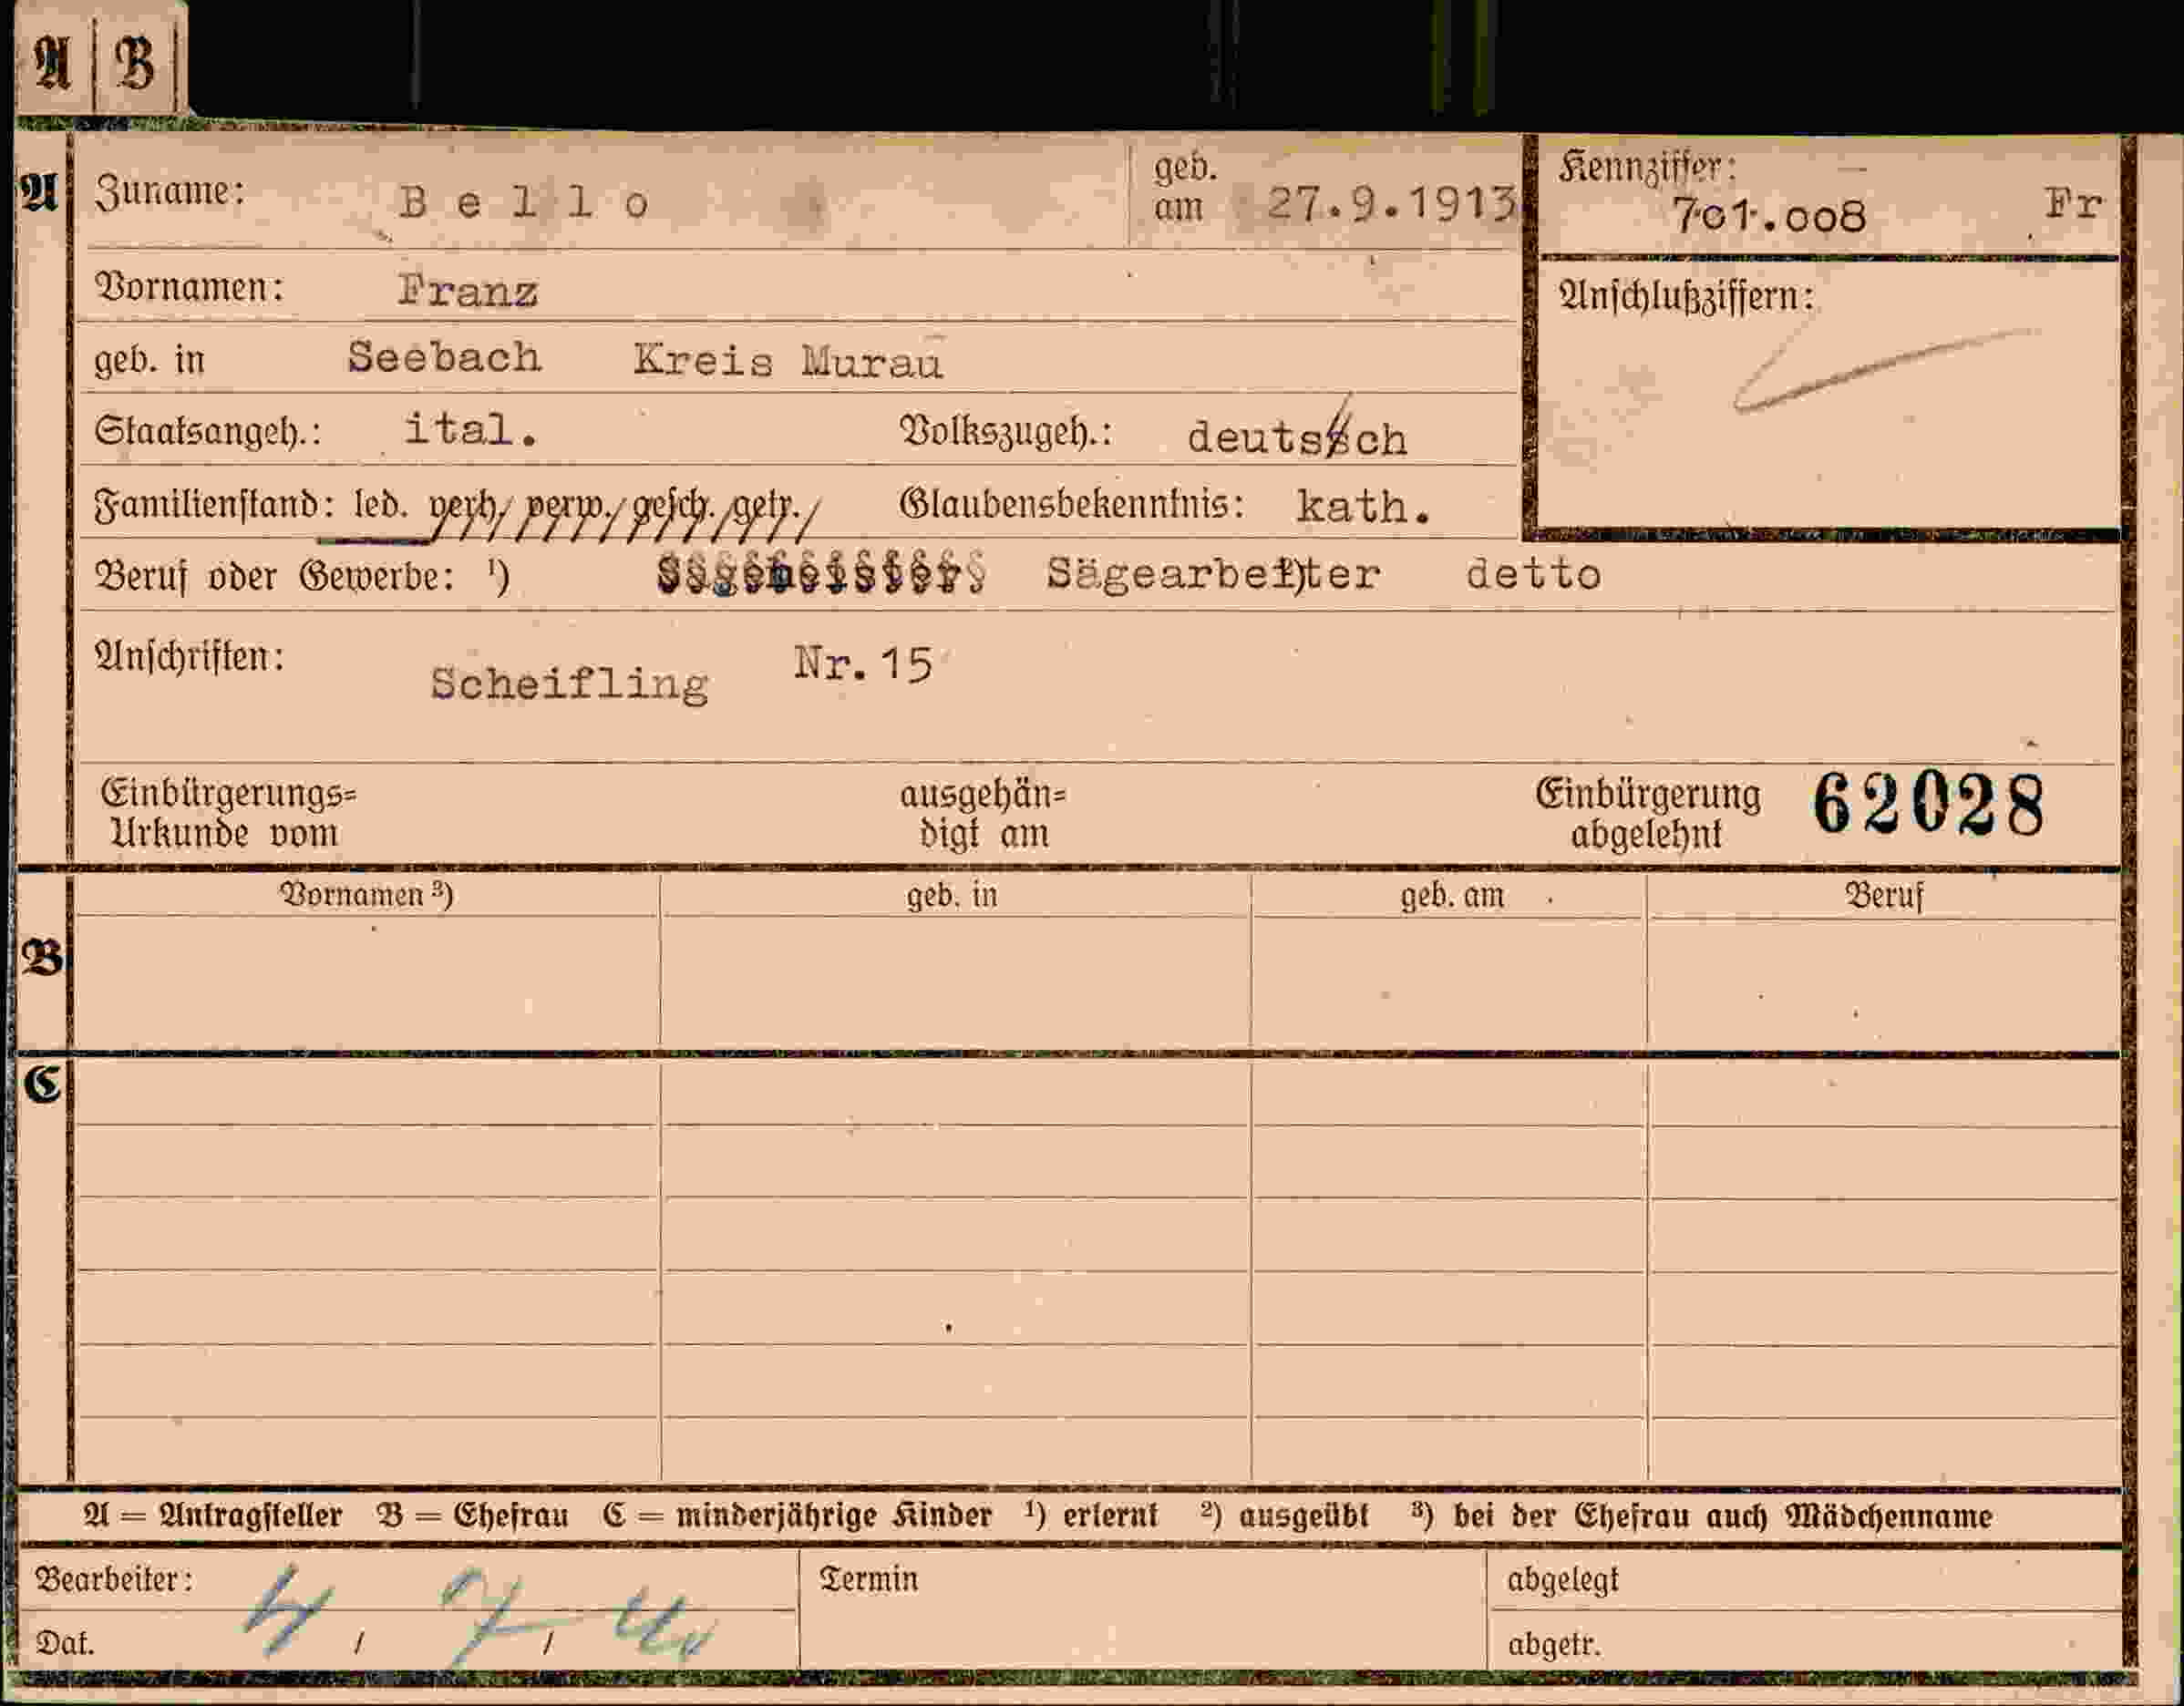 A B
A Zuname: Bello geb. am 27.9.1913 Kennziffer: 701.008 Fr
Vornamen: Franz Anschlußziffern:
geb. in Seebach Kreis Murau
Staatsangeh.: ital. Volkszugeh.: deutsch
Familienstand: led. verh. verw. gesch. getr. Glaubensbekenntnis: kath.
Beruf oder Gewerbe: ¹) Sägearbeiter ²) detto
Anschriften: Scheifling Nr. 15
Einbürgerungs= ausgehän= Einbürgerung 62028
Urkunde vom digt am abgelehnt
Vornamen ³) geb. in geb. am Beruf
B
C
A = Antragsteller B = Ehefrau C = minderjährige Kinder ¹) erlernt ²) ausgeübt ³) bei der Ehefrau auch Mädchenname
Bearbeiter: Termin abgelegt
Dat. 4 / 7 / abgetr.